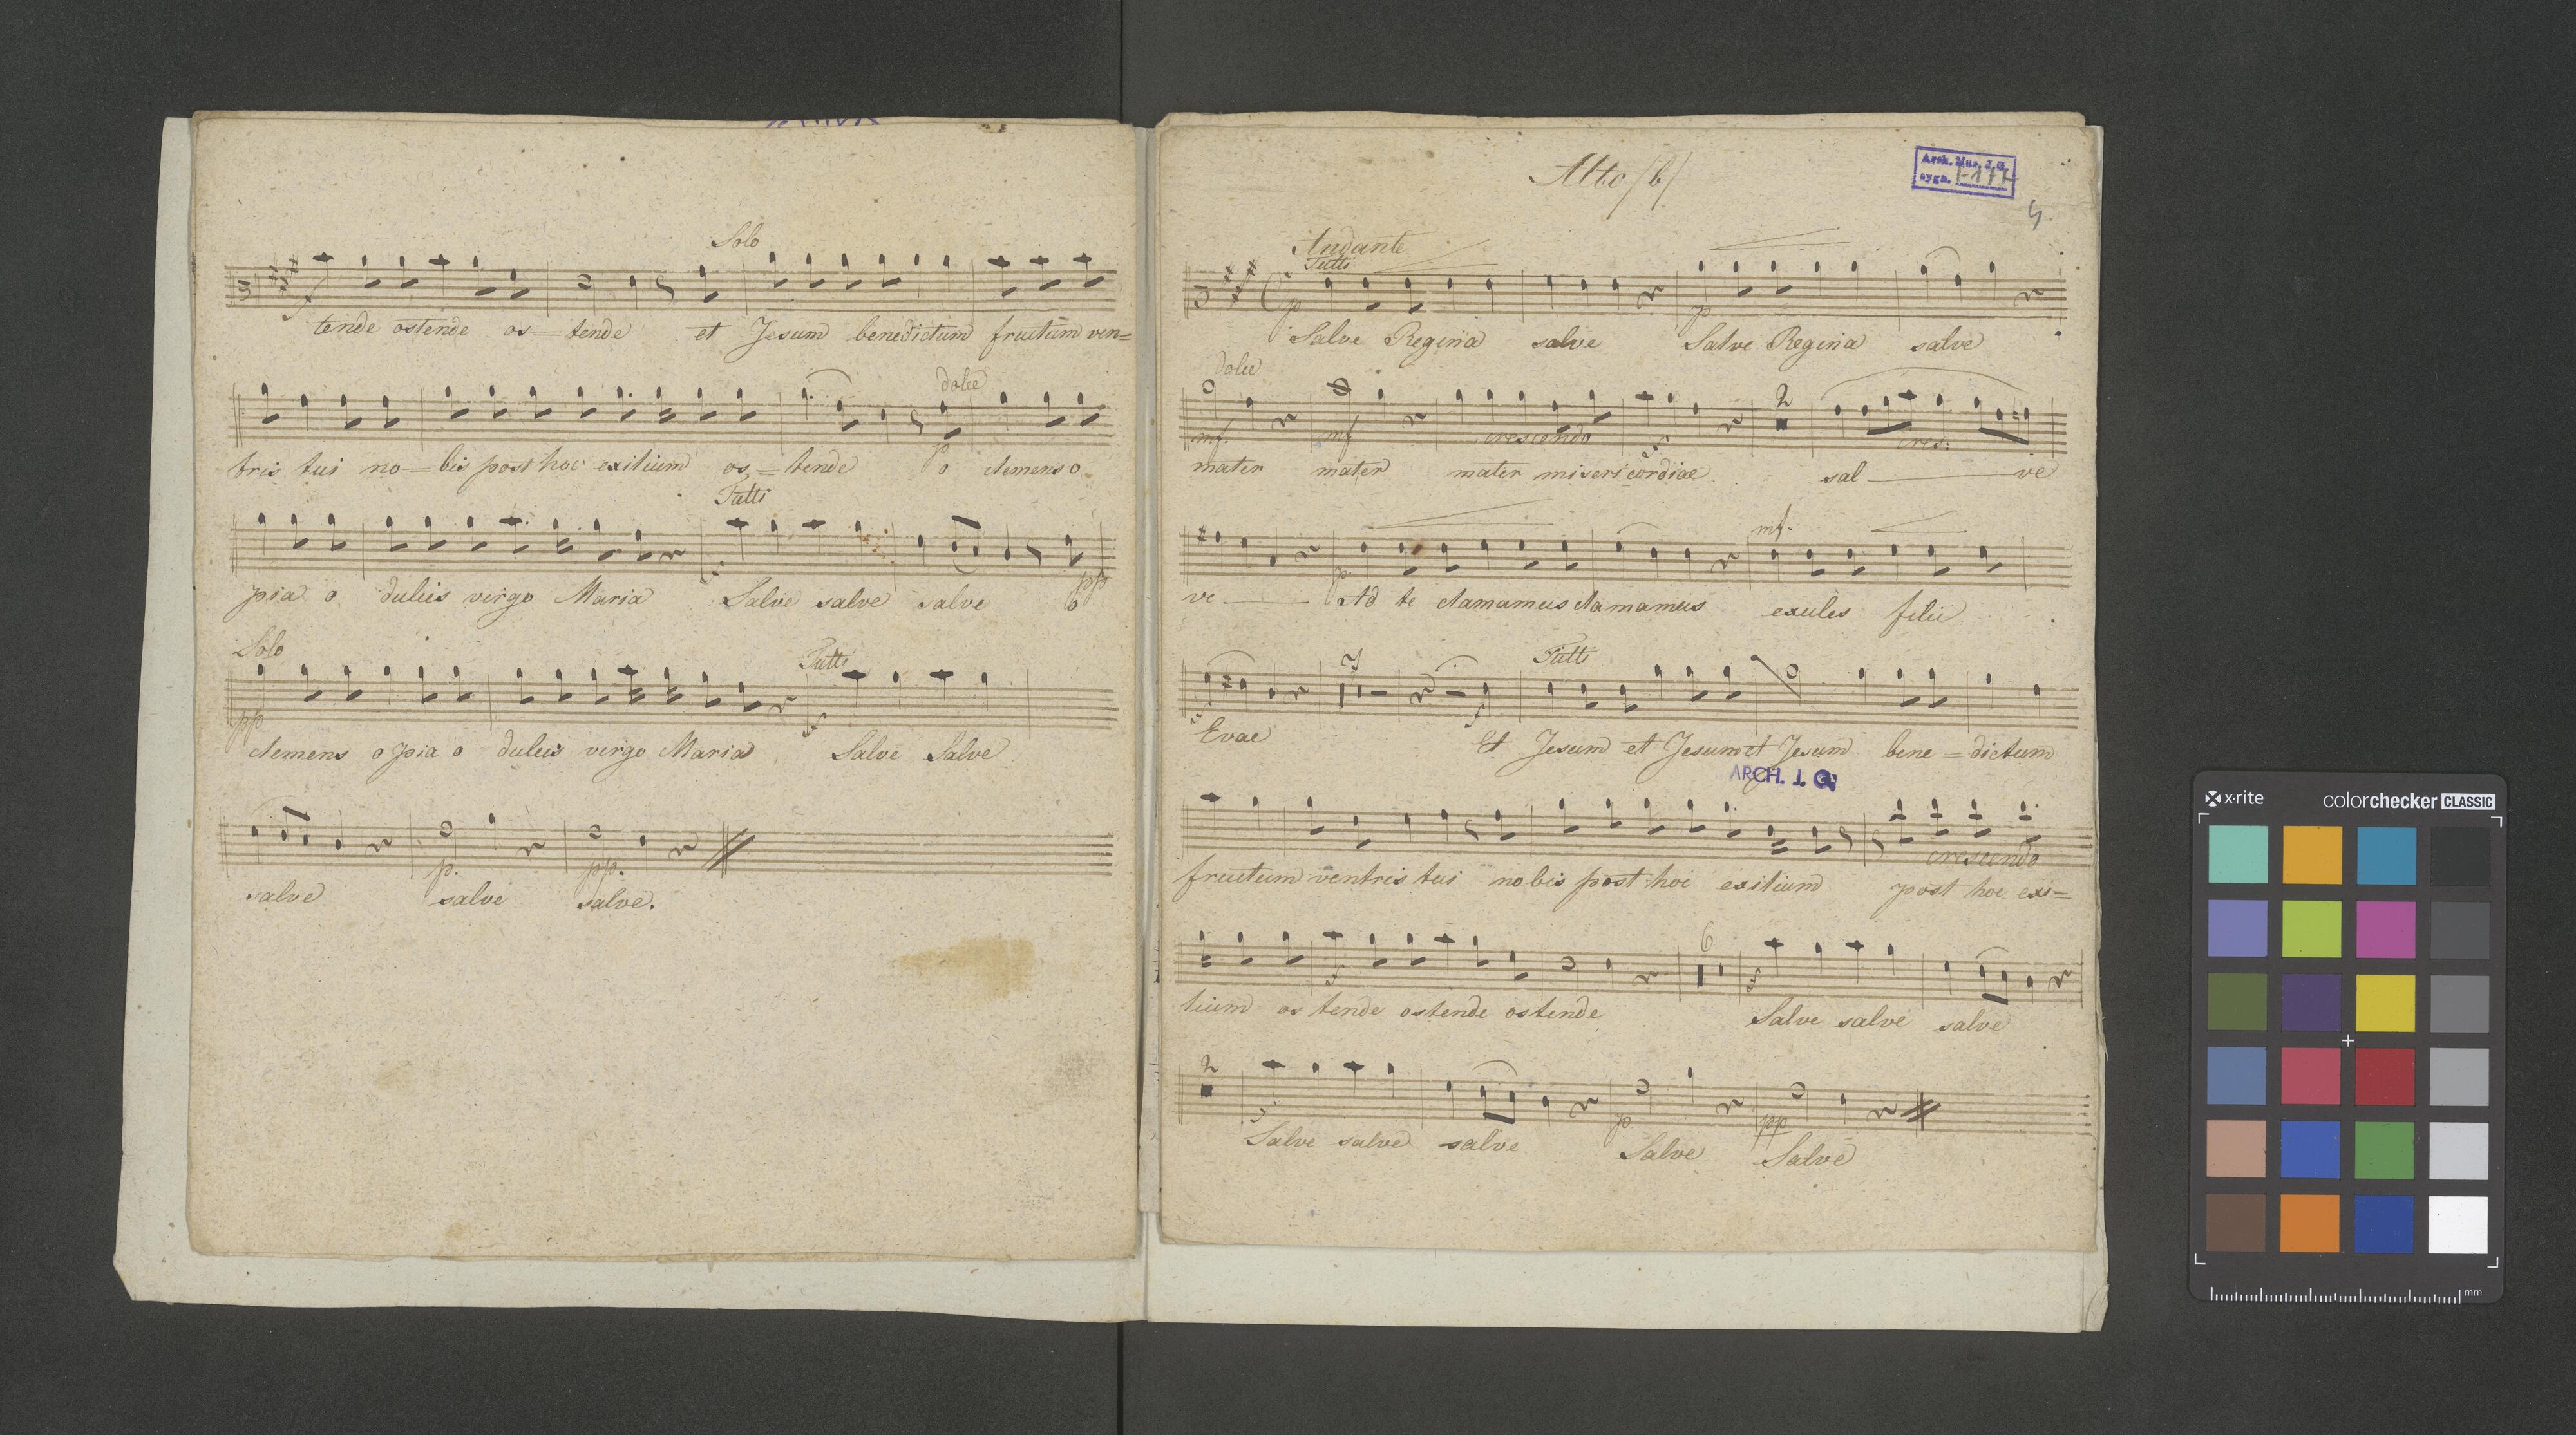 Solo
f
tende ostende os=tende et Jesum benedictum fructum ven=
dolce
p
tris tui no=bis post hoc exilium os=tende o clemens o
Tutti
f
pp
pia o dulcis virgo Maria Salve salve salve o
Solo
Tutti
pp
f
clemens o pia o dulcis virgo Maria Salve Salve
p. pp.
salve salve salve.
Alto /b/
Arch. Mus. J. G.
sygn. I-177
4.
Andante
Tutti
p p
Salve Regina salve Salve Regina salve
dolce
2
mf. mf crescendo f cres:
mater mater mater misericordiae. sal ve
mf.
p.
ve Ad te clamamus clamamus exules filii
7 Tutti
f
Evae Et Jesum et Jesum et Jesum bene=dictum
ARCH. J. G.
crescendo
fructum ventris tui nobis post hoc exilium post hoc exi=
6
f f
lium os tende ostende ostende Salve salve salve
2
f p pp
Salve salve salve Salve Salve
x·rite colorchecker CLASSIC
mm